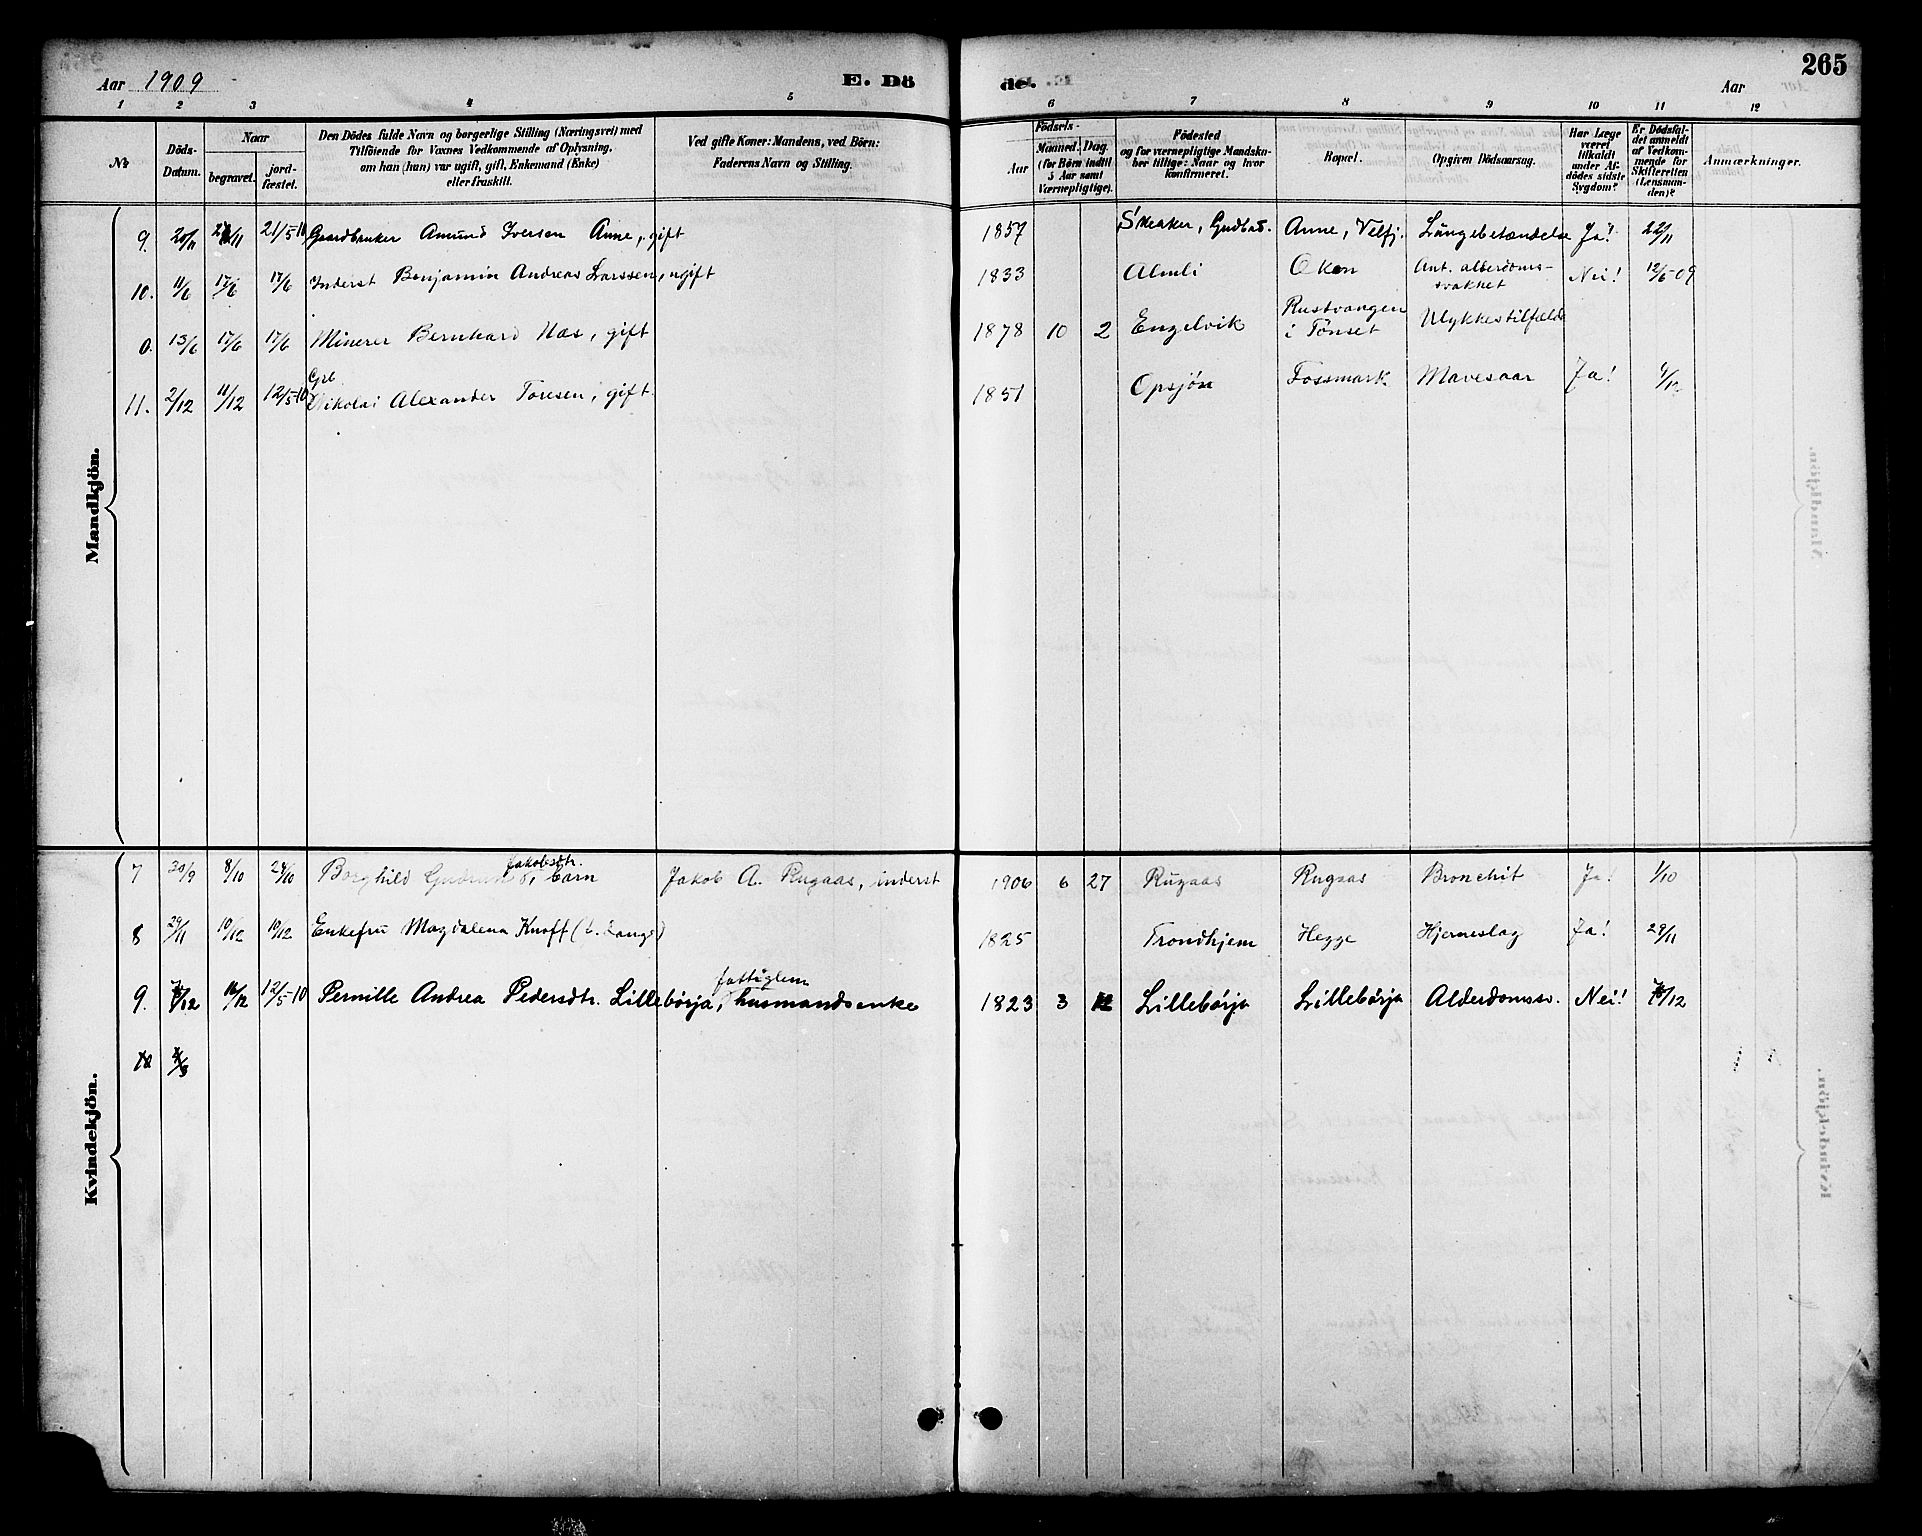 265
Aar 1909 E. Dö de. Aar
1 2 3 4 5 6 7 8 9 10 11 12
No
Döds-Datum.
Naar
begravet.
jord-fæstet.
Den Dödes fulde Navn og borgerlige Stilling (Næringsvei) med
Tilföiende for Voxnes Vedkommende af Oplysning,
om han (hun) var ugift, gift, Enkemand (Enke)
eller fraskilt.
Ved gifte Koner: Mandens, ved Börn:
Faderens Navn og Stilling.
Födsels-
Aar
Maaned. Dag.
(for Börn indtil
5 Aar samt
Værnepligtige).
Födested
og for værnepligtige Mandsko-
ber tillige: Naar og hvor
konfirmeret.
Bopæl.
Opgiven Dödsaarsag.
Har Læge
været
tilkaldt
under Af-
dödes sidste
Sygdom?
Er Dödsfal-
det anmeldt
af Vedkom-
mende for
Skifteretten
(Lensman-
den)?
Anmærkninger.
Mandkjön.
9. 20/11 21/5-10 Gaardbruker Amund Iversen Anne, gift 1857 Skeaker, Gudbd. Anne, Velfj. Lungebetændelse Ja! 22/11
10. 11/6 17/6 17/6 Inderst Benjamin Andreas Larssen, ugift 1833 Almli Oken Ant. alderdoms-
svakhet Nei! 12/6-09
0. 13/6 17/6 17/6 Minerer Bernhard Næs, gift 1878 10 2 Engelvik Rustvangen
i Tönset Ulykkestilfælde
11. 2/12 11/12 12/5-10 Grb.
Nikolai Alexander Toresen, gift 1851 Opsjön Fossmark Mavesaar Ja! 4/12
Kvindekjön.
7 30/9 8/10 24/10 Borghild Gudrun Jakobsdtr., barn Jakob A. Rugaas, inderst 1906 6 27 Rugaas Rugaas Bronchit Ja! 1/10
8 29/11 10/12 10/12 Enkefru Magdalena Knoff (f. Lange) 1825 Trondhjem Hegge Hjerneslag Ja! 29/11
9. 16/12 12/5-10 Pernille Andrea Pedersdtr. Lillebörja, fattiglem
husmandsenke 1823 3 Lillebörja Lillebörja Alderdomssv. Nei!